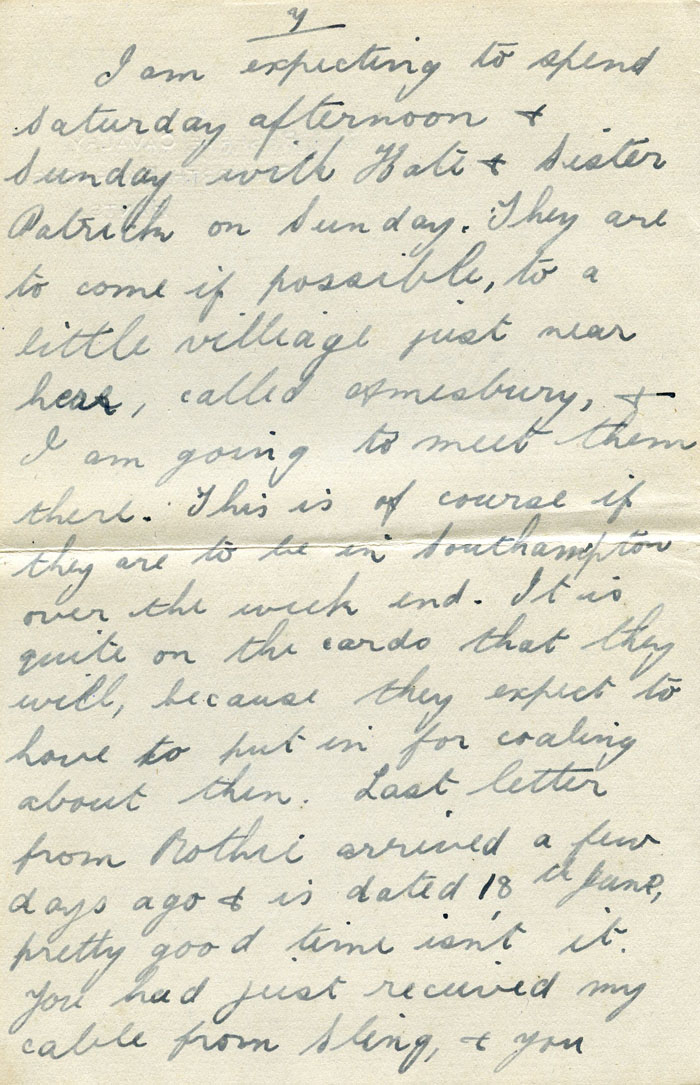 y
I am expecting to spend
Saturday afternoon &
Sunday with Kate & Sister
Patrick on Sunday. They are
to come if possible, to a
little villiage just near
here, called Amesbury, &
I am going to meet them
there. This is of course if
they are to be in Southampton
over the week end. It is
quite on the cards that they
will, because they expect to
have to put in for coaling
about then. Last letter
from Rothie arrived a few
days ago & is dated 18th June,
pretty good time isn't it.
You had just received my
cable from Sling, & you